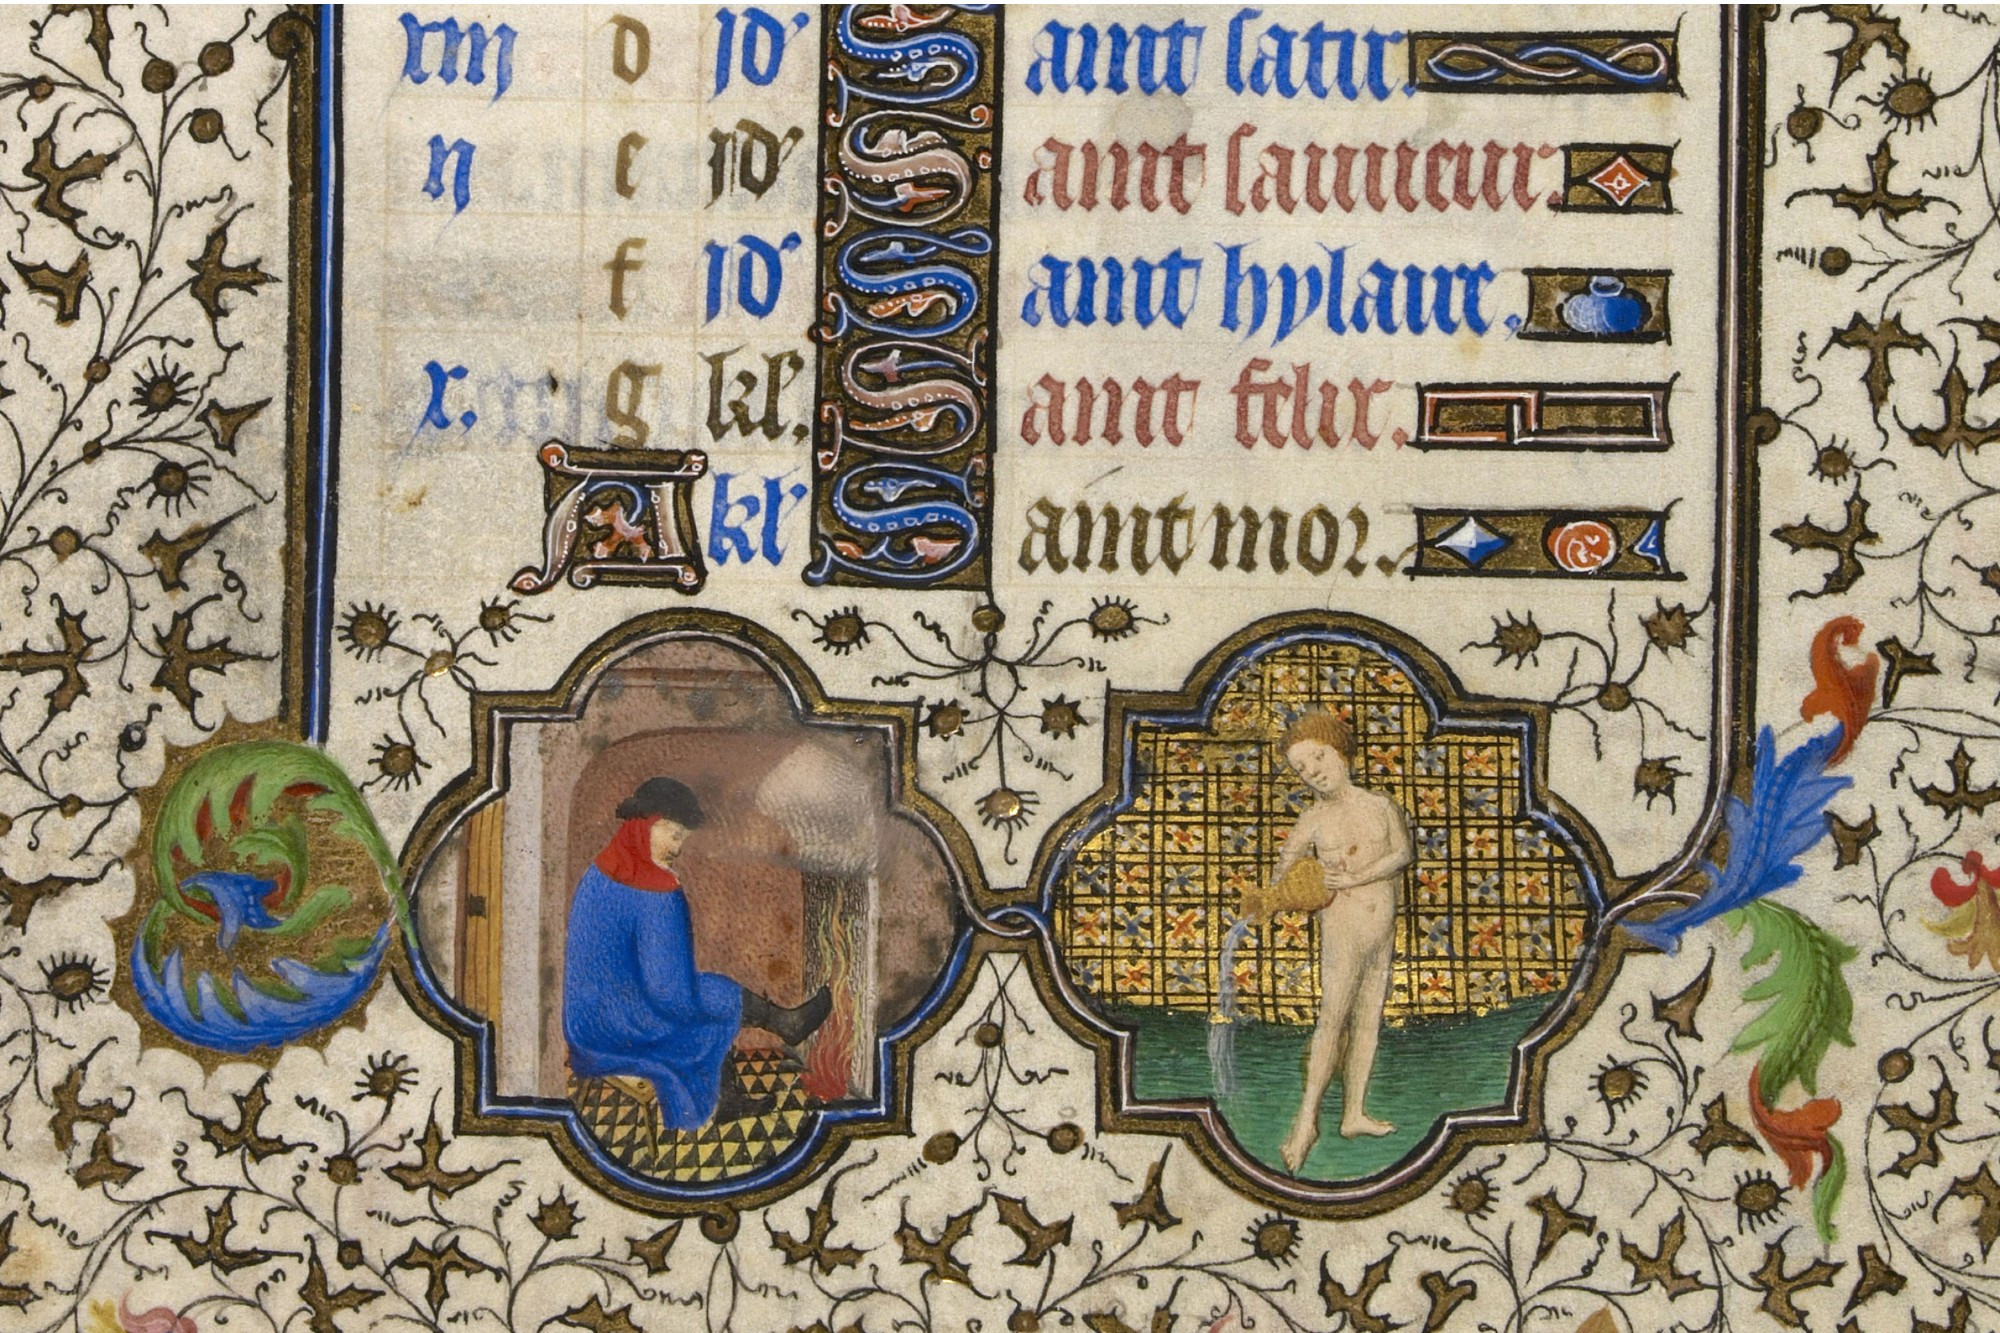 xiii d id' Saint satir.
ii e id' Saint sauueur.
f id' Saint hylaire.
x. g kl'. Saint felix.
A kl' Saint mor.